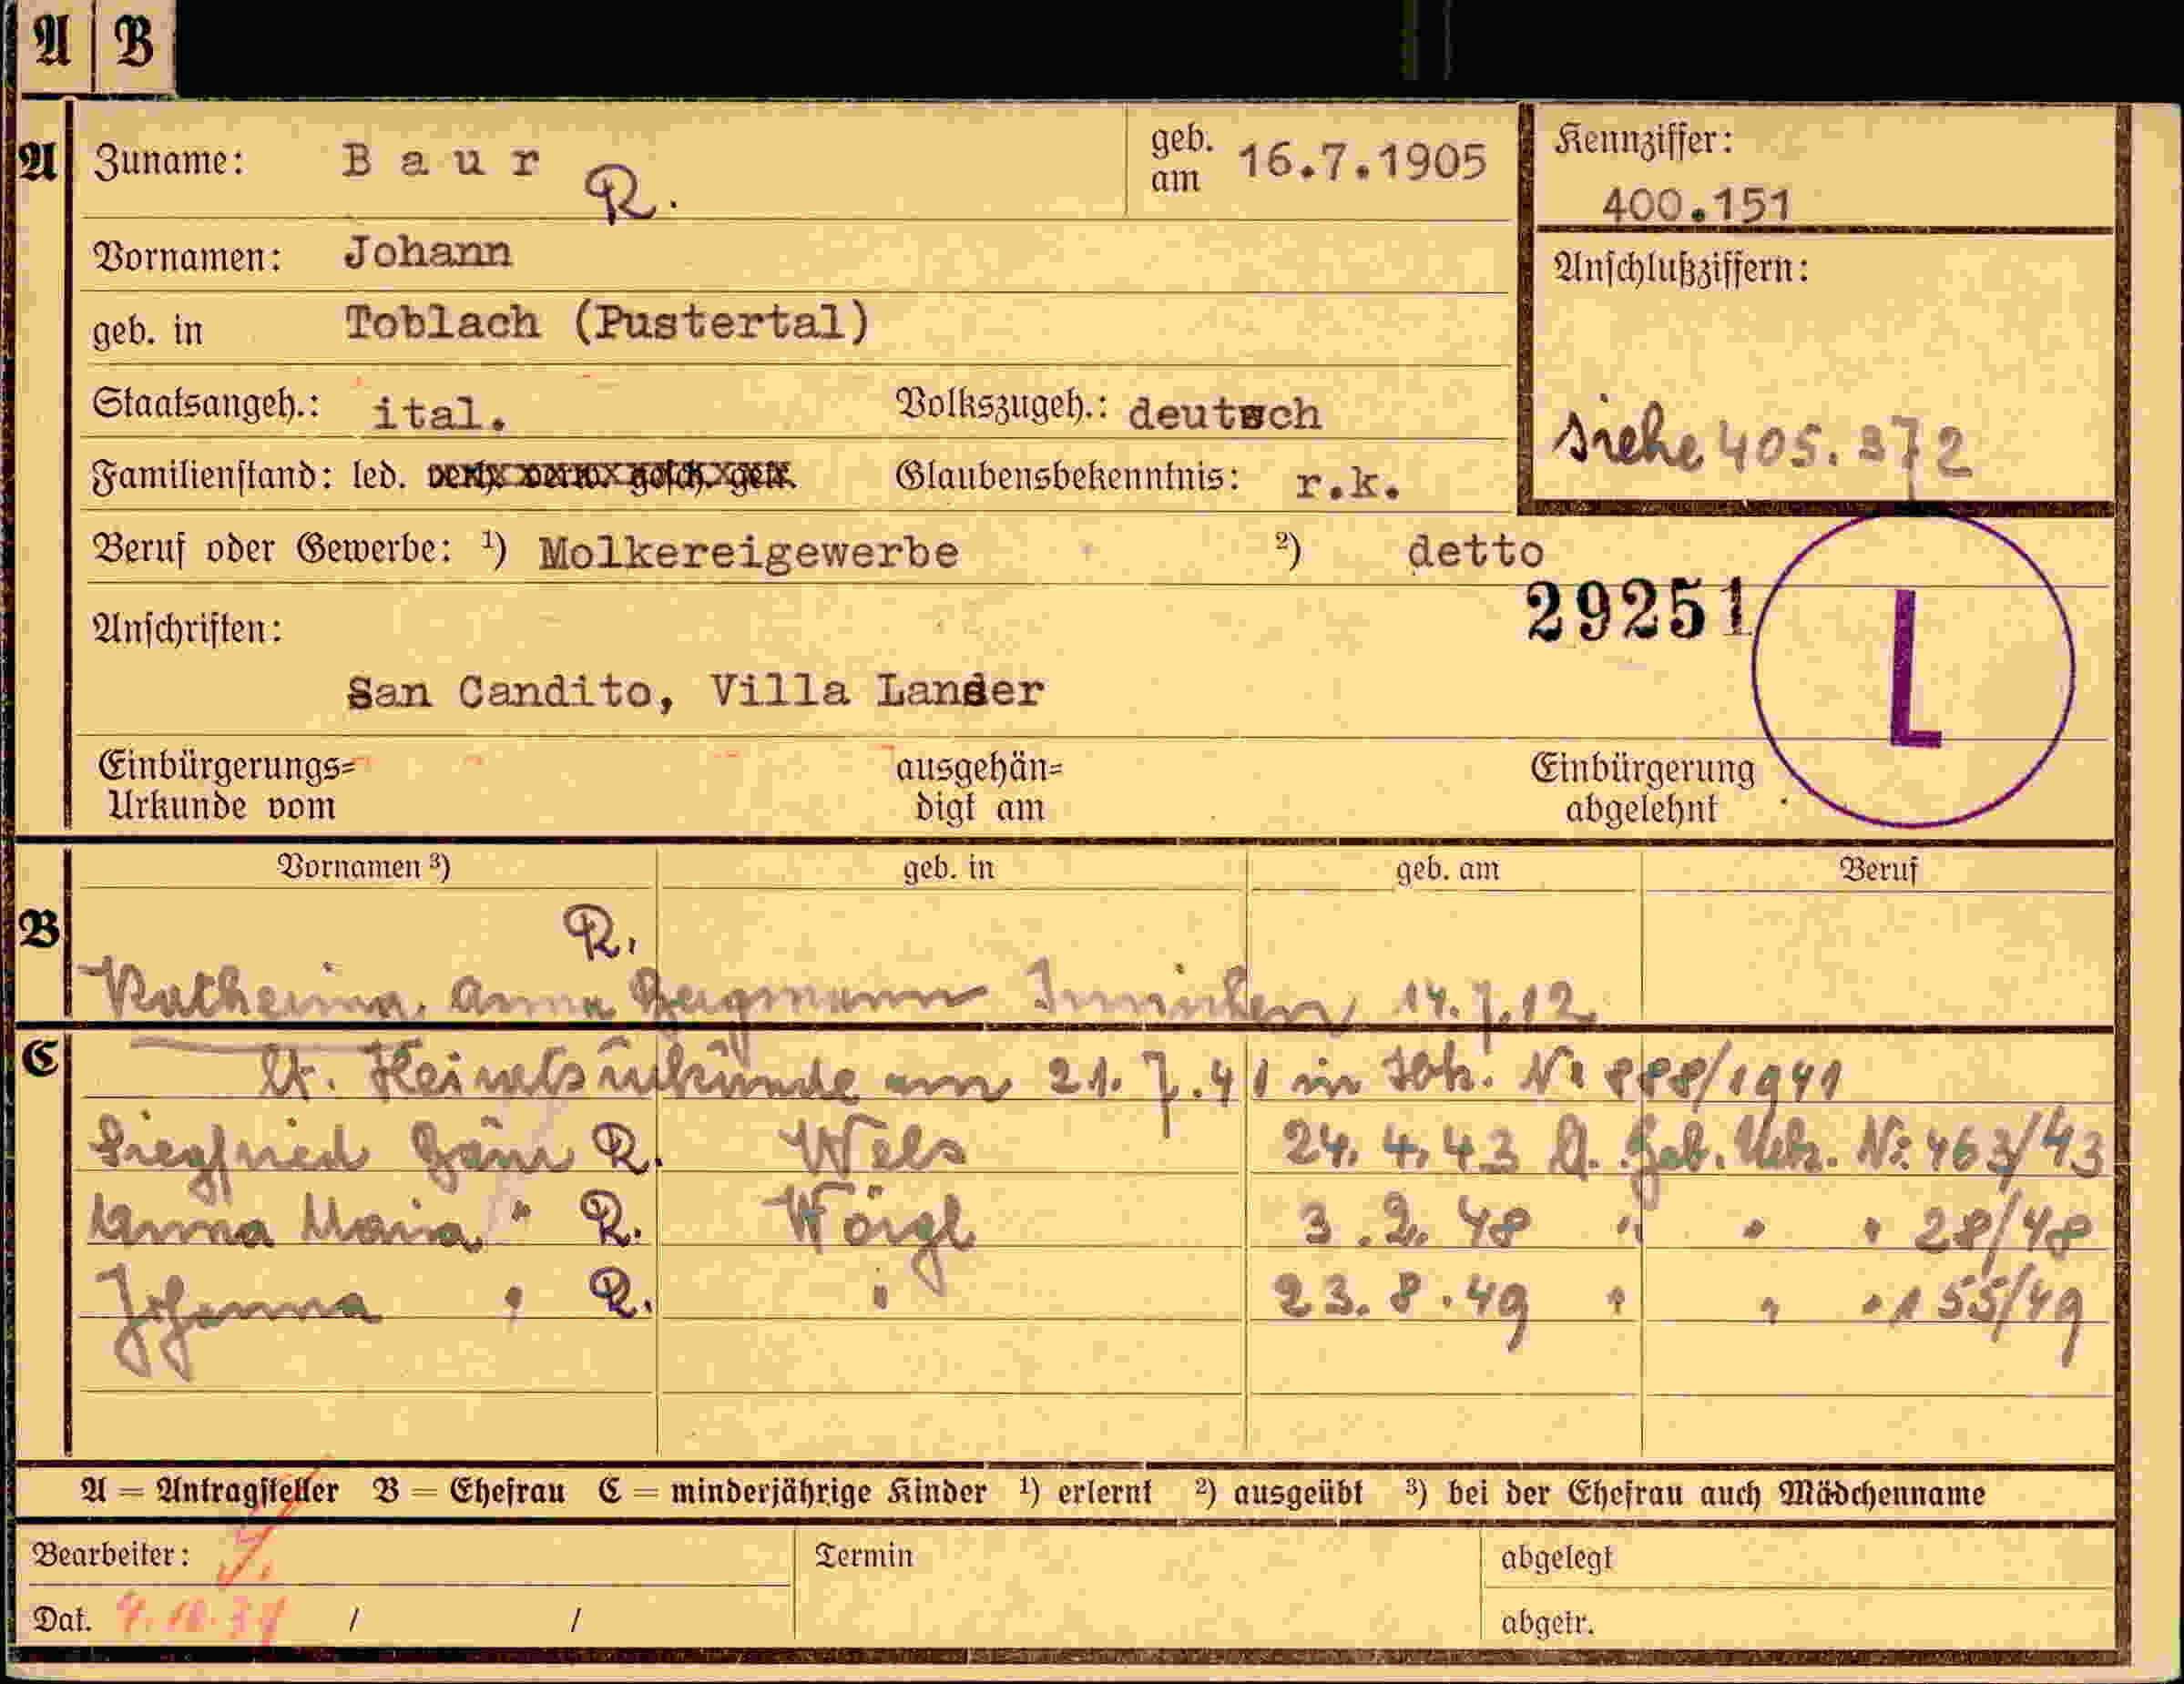 A B
A Zuname: Baur R. geb. am 16.7.1905 Kennziffer: 400.151
Vornamen: Johann Anschlußziffern:
geb. in Toblach (Pustertal)
Staatsangeh.: ital. Volkszugeh.: deutsch siehe 405.372
Familienstand: led. verh. verw. gesch. getr. Glaubensbekenntnis: r.k.
Beruf oder Gewerbe: ¹) Molkereigewerbe ²) detto
29251 L
Anschriften:
San Candito, Villa Lanser
Einbürgerungs= ausgehän= Einbürgerung
Urkunde vom digt am abgelehnt
Vornamen ³) geb. in geb. am Beruf
B R.
Katherina Anna Bergmann Innichen 14.7.12
C lt. Heiratsurkunde am 21.7.41 in Ibk. Nr 888/1941
Siegfried Baur R. Wels 24.4.43 lt. Geb. Urk. Nr. 463/43
Anna Maria " R. Wörgl 3.2.48 " " " 28/48
Johanna " R. " 23.8.49 " " " 155/49
A = Antragsteller B = Ehefrau C = minderjährige Kinder ¹) erlernt ²) ausgeübt ³) bei der Ehefrau auch Mädchenname
Bearbeiter: Termin abgelegt
Dat. / / abgetr.